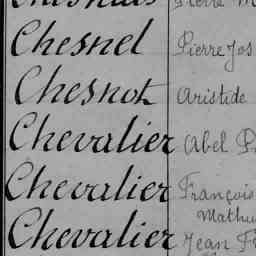 Chesnel Pierre Jos
Chesnot Aristide
Chevalier Abel P
Chevalier François
Mathu
Chevalier Jean F